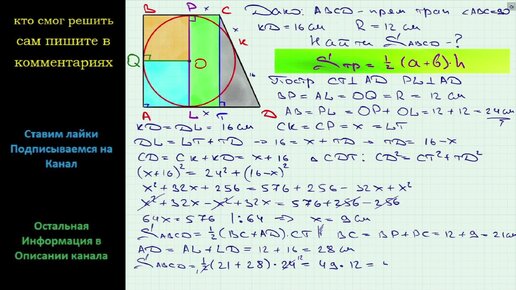 кто смог решить
сам пишите в
комментариях
Ставим лайки
Подписываемся на
Канал
Остальная
Информация в
Описании канала
B P x C
x
K
Q O
16
A L x T D
Дано: ABCD - прям трап ∠ABC=90°
KD=16см R=12см
Найти SABCD-?
Sтр = 1/2 (a+b)·h
Постр CT⊥AD PL⊥AD
BP=AL=OQ=R=12см
AB=PL=OP+OL=12+12=24см
KD=DL=16см CK=CP=x=LT
DL=LT+TD → 16=x+TD → TD=16-x
CD=CK+KD=x+16 ΔCDT: CD²=CT²+TD²
(x+16)²=24²+(16-x)²
x²+32x+256=576+256-32x+x²
x²+32x-x²+32x=576+256-256
64x=576 |:64 → x=9см
SABCD=1/2(BC+AD)·CT BC=BP+PC=12+9=21см
AD=AL+LD=12+16=28см
SABCD=1/2(21+28)·24 12=49·12=